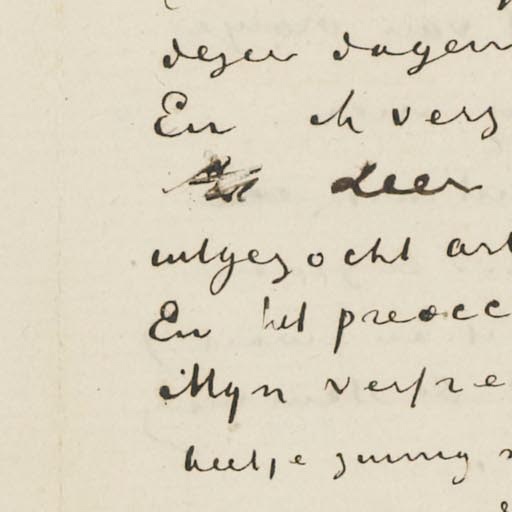 dezer dagen
En ik verz
deer
uitgezocht art
En het preocc
Mijn verfre
beetje zuinig